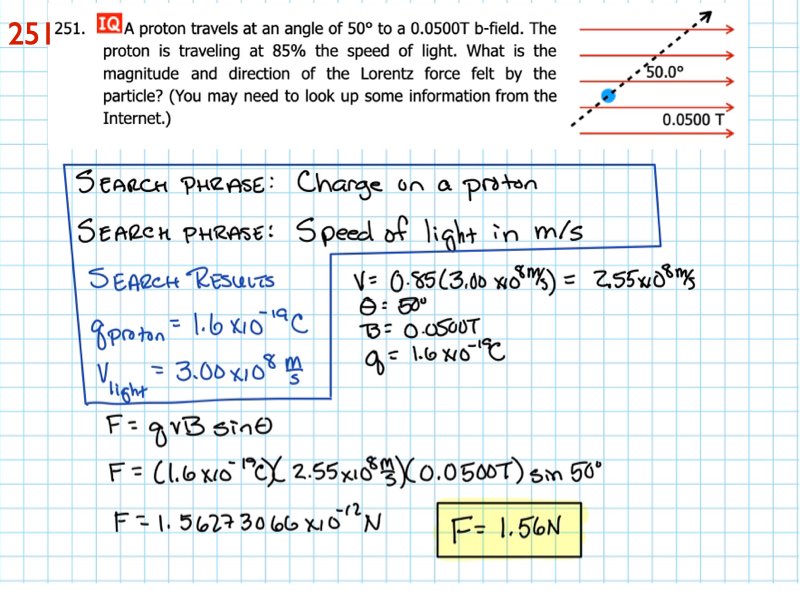 251
251. IQ A proton travels at an angle of 50º to a 0.0500T b-field. The
proton is traveling at 85% the speed of light. What is the
magnitude and direction of the Lorentz force felt by the
particle? (You may need to look up some information from the
Internet.)
50.0º
0.0500 T
SEARCH PHRASE: Charge on a proton
SEARCH PHRASE: Speed of light in m/s
SEARCH RESULTS
q proton = 1.6 x10⁻¹⁹C
V light = 3.00 x10⁸ m/s
V= 0.85(3.00 x10⁸ m/s) = 2.55x10⁸ m/s
θ = 50º
B = 0.0500T
q = 1.6 x10⁻¹⁹C
F = qvB sinθ
F = (1.6 x10⁻¹⁹C)(2.55x10⁸ m/s)(0.0500T) sin 50º
F = 1.56273066 x10⁻¹² N
F= 1.56N